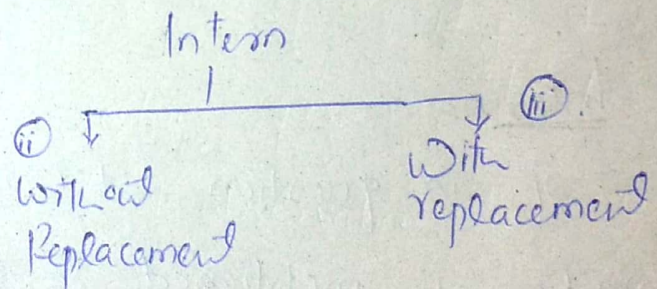 Intern
(ii)
without
Replacement
(iii).
With
replacement